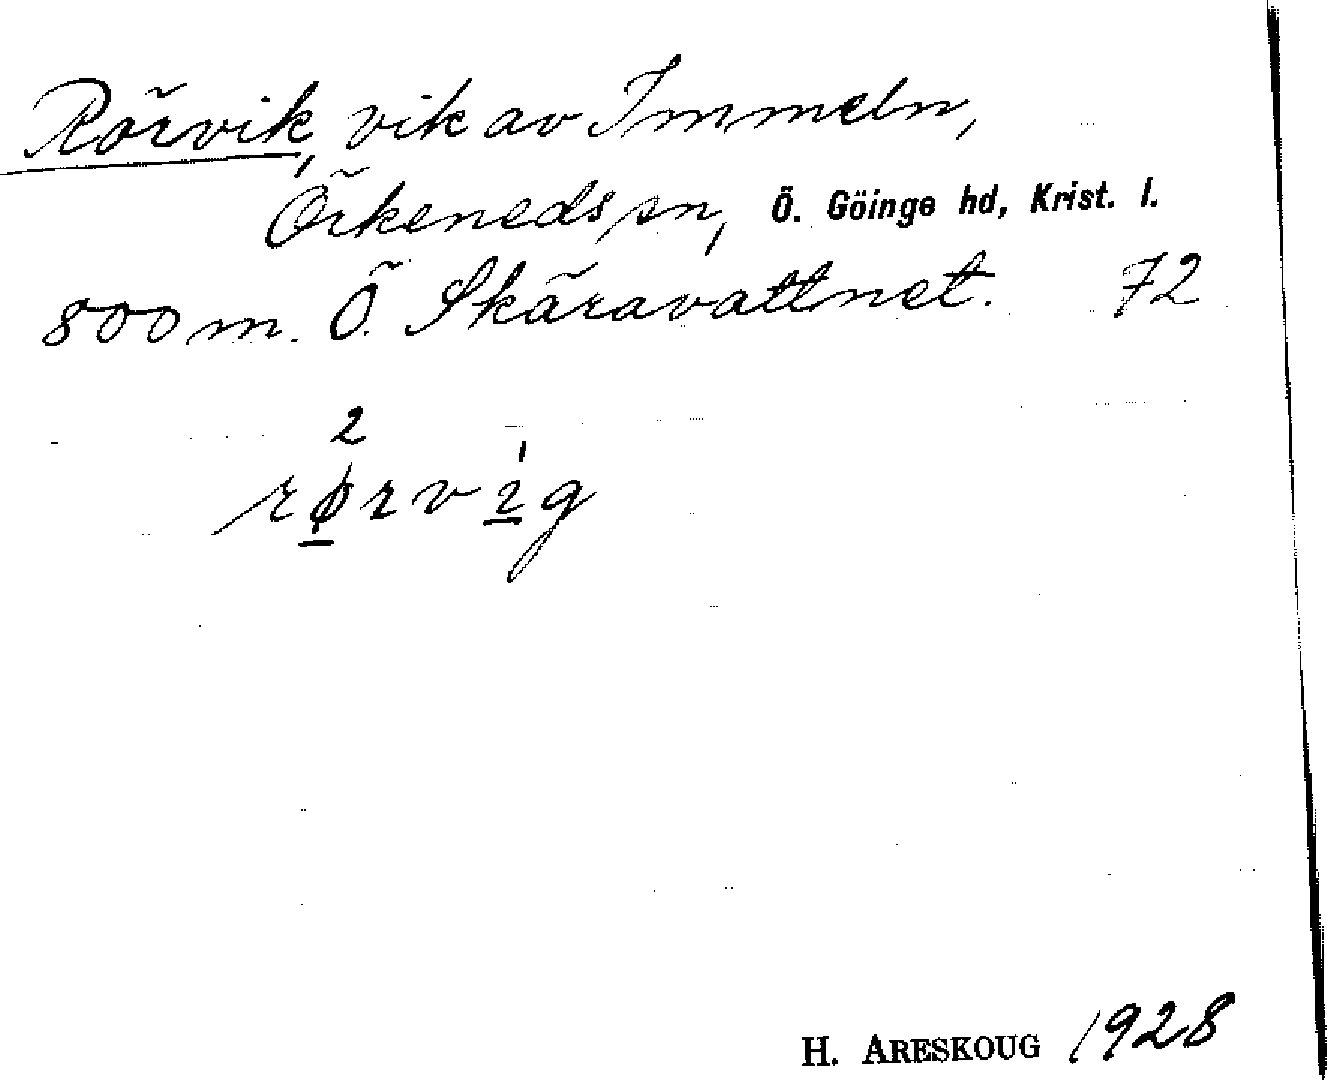 Rörvik, vik av Immeln,
Örkeneds sn, Ö. Göinge hd, Krist. l.
800 m. Ö. Skäravattnet. 72
2 ˈ
rø̱rvi̱g
H. ARESKOUG 1928